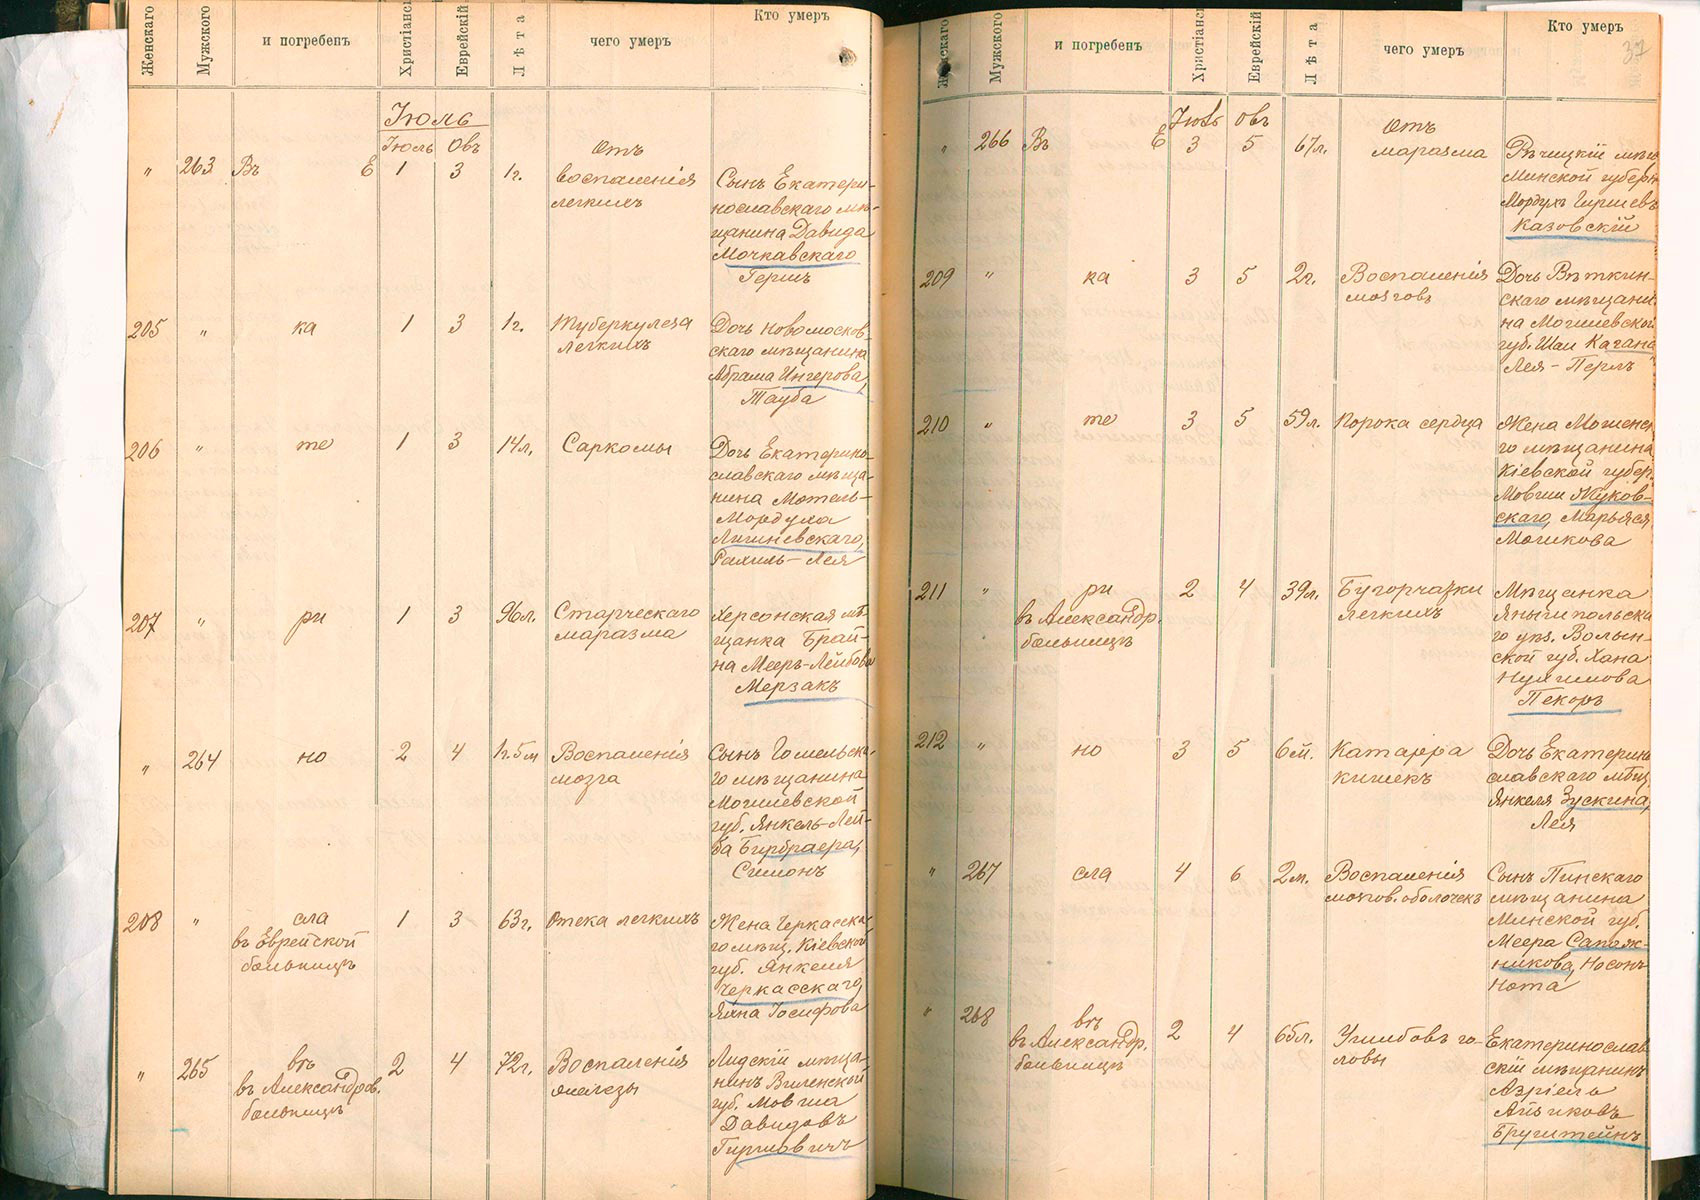 Женскаго
Мужского
и погребенъ
Христіанс
Еврейскій
Лѣта
чего умеръ
Кто умеръ
Іюль
Іюль Овъ
" 263 Въ Е 1 3 1г.
Отъ
воспаленія
легкихъ
Сынъ Екатери-
нославскаго мѣ-
щанина Давида
Мочкавскаго
Гершъ
205 " ка 1 3 1г.
Туберкулеза
легкихъ
Дочь новомосков-
скаго мѣщанина
Абрама Ингерова,
Тауба
206 " те 1 3 14л. Саркомы
Дочь Екатерино-
славскаго мѣща-
нина Мотель-
Мордуха
Лишневскаго,
Рахиль-Лея
207 " ри 1 3 96л.
Старческаго
маразма
Херсонская мѣ-
щанка Брай-
на Мееръ-Лейбова
Мерзакъ
" 264 но 2 4 1г.5м
Воспаленія
мозга
Сынъ Гомельска-
го мѣщанина
Могилевской
губ. Янкель-Лей-
ба Бирбраера,
Симонъ
208 " сла
въ Еврейской
больницѣ
1 3 63г. Отека легкихъ
Жена Черкасска-
го мѣщ. Кіевской
губ. Янкеля
Черкасскаго,
Яхна Іосифова
" 265 въ
въ Александров.
больницѣ
2 4 72г.
Воспаленія
железы
Лидскій мѣща-
нинъ Виленской
губ. Мовша
Давидовъ
Гиршовичъ
Женскаго
Мужского
и погребенъ
Христіанс
Еврейскій
Лѣта
чего умеръ
Кто умеръ
37
Іюль Овъ
" 266 Въ Е 3 5 67л.
Отъ
маразма
Рѣчицкій мѣщ
Минской губерн
Мордухъ Гиршевъ
Казовскій
209 " ка 3 5 2г.
Воспаленія
мозговъ
Дочь Вѣткин-
скаго мѣщани-
на Могилевской
губ. Шаи Кагана
Лея-Перль
210 " те 3 5 59л. Порока сердца
Жена Мошенс
го мѣщанина
Кіевской губер.
Мовши Жуков-
скаго, Марьяся
Мошкова
211 " ри
въ Александр.
больницѣ
2 4 39л.
Бугорчатки
легкихъ
Мѣщанка
Яныгипольска
го упз. Волын-
ской губ. Хана
Нухимова
Пекоръ
212 " но 3 5 6м.
Катарра
кишекъ
Дочь Екатерино
славскаго мѣщ
Янкеля Зускина,
Лея
" 267 сла 4 6 2м.
Воспаленія
мозгов. оболочекъ
Сынъ Пинскаго
мѣщанина
Минской губ.
Меера Сапож-
никова, Носонъ-
Нота
" 268 въ
въ Александр.
больницѣ
2 4 65л.
Ушибовъ го-
ловы
Екатеринослав
скій мѣщанинъ
Азріель
Айзиковъ
Бруштейнъ